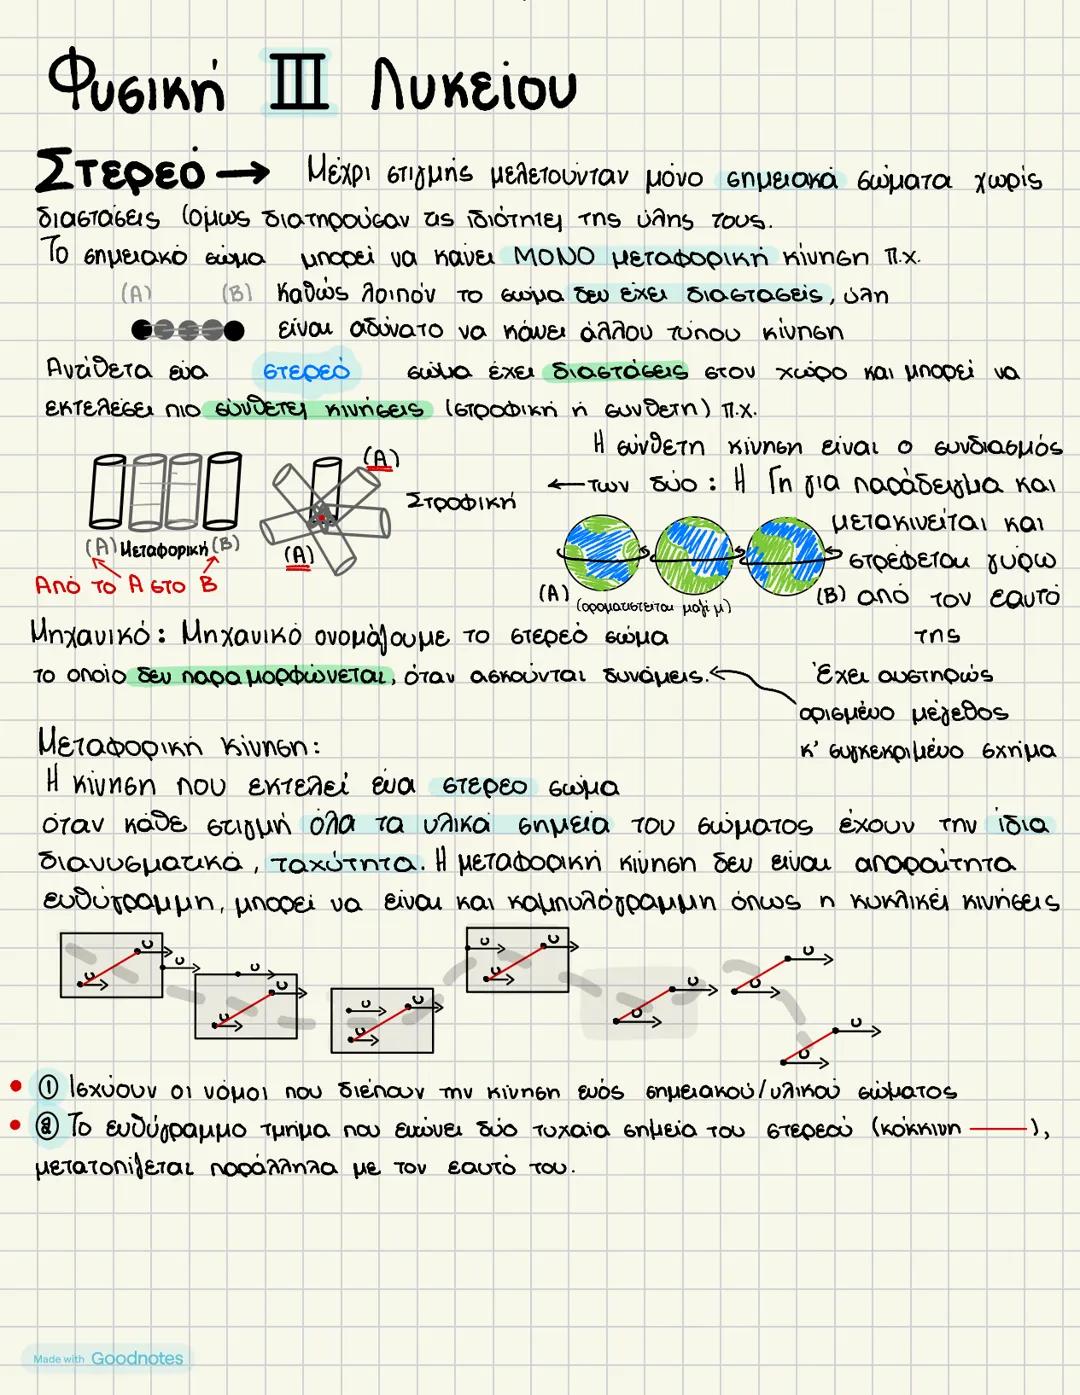 Φυσική III Λυκείου
Στερεό → Μέχρι στιγμής μελετούνταν μόνο σημειακά σώματα χωρίς
διαστάσεις (όμως διατηρούσαν τις ιδιότητες της ύλης τους.
Το σημειακό σώμα μπορεί να κάνει ΜΟΝΟ μεταφορική κίνηση π.χ.
(Α) (Β) Καθώς λοιπόν το σώμα δεν έχει διαστάσεις, ύλη
είναι αδύνατο να κάνει άλλου τύπου κίνηση
Αντίθετα ένα στερεό σώμα έχει διαστάσεις στον χώρο και μπορεί να
εκτελέσει πιο σύνθετες κινήσεις (στροφική ή συνθετη) π.χ.
Η σύνθετη κίνηση είναι ο συνδιασμός
(Α)
Στροφική ← των δύο : Η Γη για παράδειγμα και
μετακινείται και
(Α) Μεταφορική (Β) (Α)
στρέφεται γύρω
Από το Α στο Β
(Α) (Β) από τον εαυτό
της
Μηχανικό : Μηχανικό ονομάζουμε το στερεό σώμα
το οποίο δεν παραμορφώνεται, όταν ασκούνται δυνάμεις. ← Έχει αυστηρώς
ορισμένο μέγεθος
κ' συγκεκριμένο σχήμα
Μεταφορική κίνηση :
Η κίνηση που εκτελεί ένα στερεο σώμα
όταν κάθε στιγμή όλα τα υλικά σημεία του σώματος έχουν την ίδια
διανυσματικά, ταχύτητα. Η μεταφορική κίνηση δεν είναι απαραίτητα
ευθύγραμμη, μπορεί να είναι και καμπυλόγραμμη όπως η κυκλικές κινήσεις
υ υ υ υ υ υ υ υ υ υ υ υ υ υ υ υ υ υ
• ① Ισχύουν οι νόμοι που διέπουν την κίνηση ενός σημειακού/υλικού σώματος
• ② Το ευθύγραμμο τμήμα που ενώνει δύο τυχαία σημεία του στερεού (κόκκινη ——),
μετατοπίζεται παράλληλα με τον εαυτό του.
Made with Goodnotes